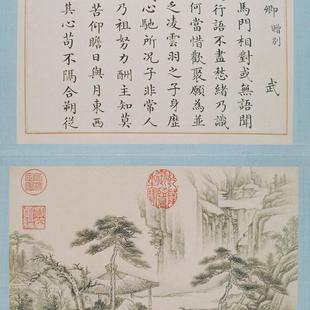 卿 贈別 武
馬門相對或無語聞
行語不盡愁緒乃識
何當惜歡聚願為並
之凌雲羽之子身歷
心馳所況子非常人
乃祖努力酬主知莫
苦仰瞻日與月東西
其心苟不隔合朔從